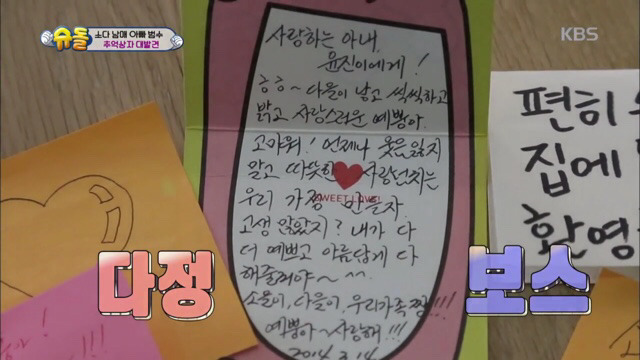 슈돌
소다 남매 아빠 범수
추억상자 대발견
KBS
사랑하는 아내,
윤진이에게!
ㅎㅎ~ 다을이 낳고 씩씩하고
밝고 사랑스러운 예쁭아.
고마워! 언제나 웃음잃지
말고 따뜻한 사랑넘치는
우리 가정 만들자.
SWEET LOVE!
고생 많았지? 내가 다
더 예쁘고 아름답게 다
해줄꺼야~ ^^
소을이, 다을이, 우리가족 짱!!!
예쁭아~ 사랑해!!!
2014. 3. 14
편히
집에
환영
다정
보스